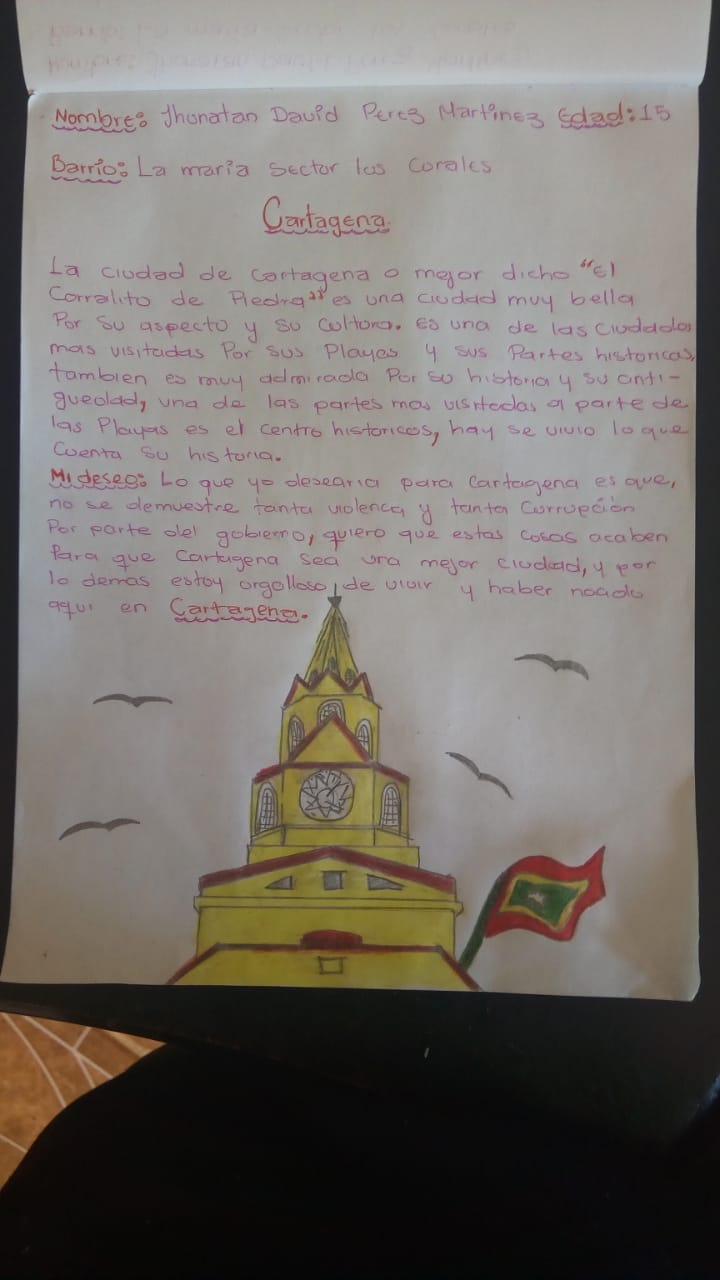 Nombre: Jhonatan David Perez Martinez Edad: 15
Barrio: La maria sector los corales
Cartagena.
La ciudad de cartagena o mejor dicho "El
Corralito de Piedra" es una ciudad muy bella
Por su aspecto y su cultura. Es una de las ciudades
mas visitadas Por sus Playas y sus Partes historicas,
tambien es muy admirada Por su historia y su anti-
guedad, una de las partes mas visitadas a parte de
las Playas es el centro historicos, hay se vivio lo que
cuenta su historia.
Mi deseo: Lo que yo desearia para cartagena es que,
no se demuestre tanta violenca y tanta corrupción
Por parte del gobierno, quiero que estas cosas acaben
Para que Cartagena sea una mejor ciudad, y por
lo demas estoy orgolloso de vivir y haber nacido
aqui en Cartagena.